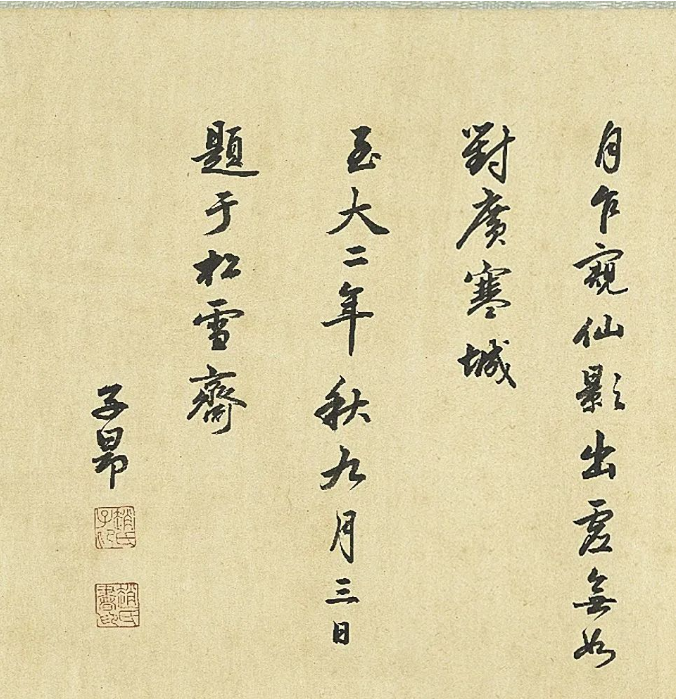 月乍窺仙影出虛無如
對廣寒城
至大二年秋九月三日
題于松雪齋
子昂
趙氏子昂
趙氏書印